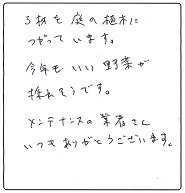 3枚を庭の植木に
つかっています。
今年もいい野菜が
採れそうです。
メンテナンスの業者さん
いつもありがとうございます。